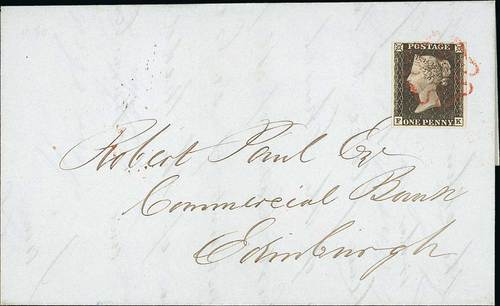 POSTAGE
F ONE PENNY K
Robert Paul Esq
Commercial Bank
Edinburgh